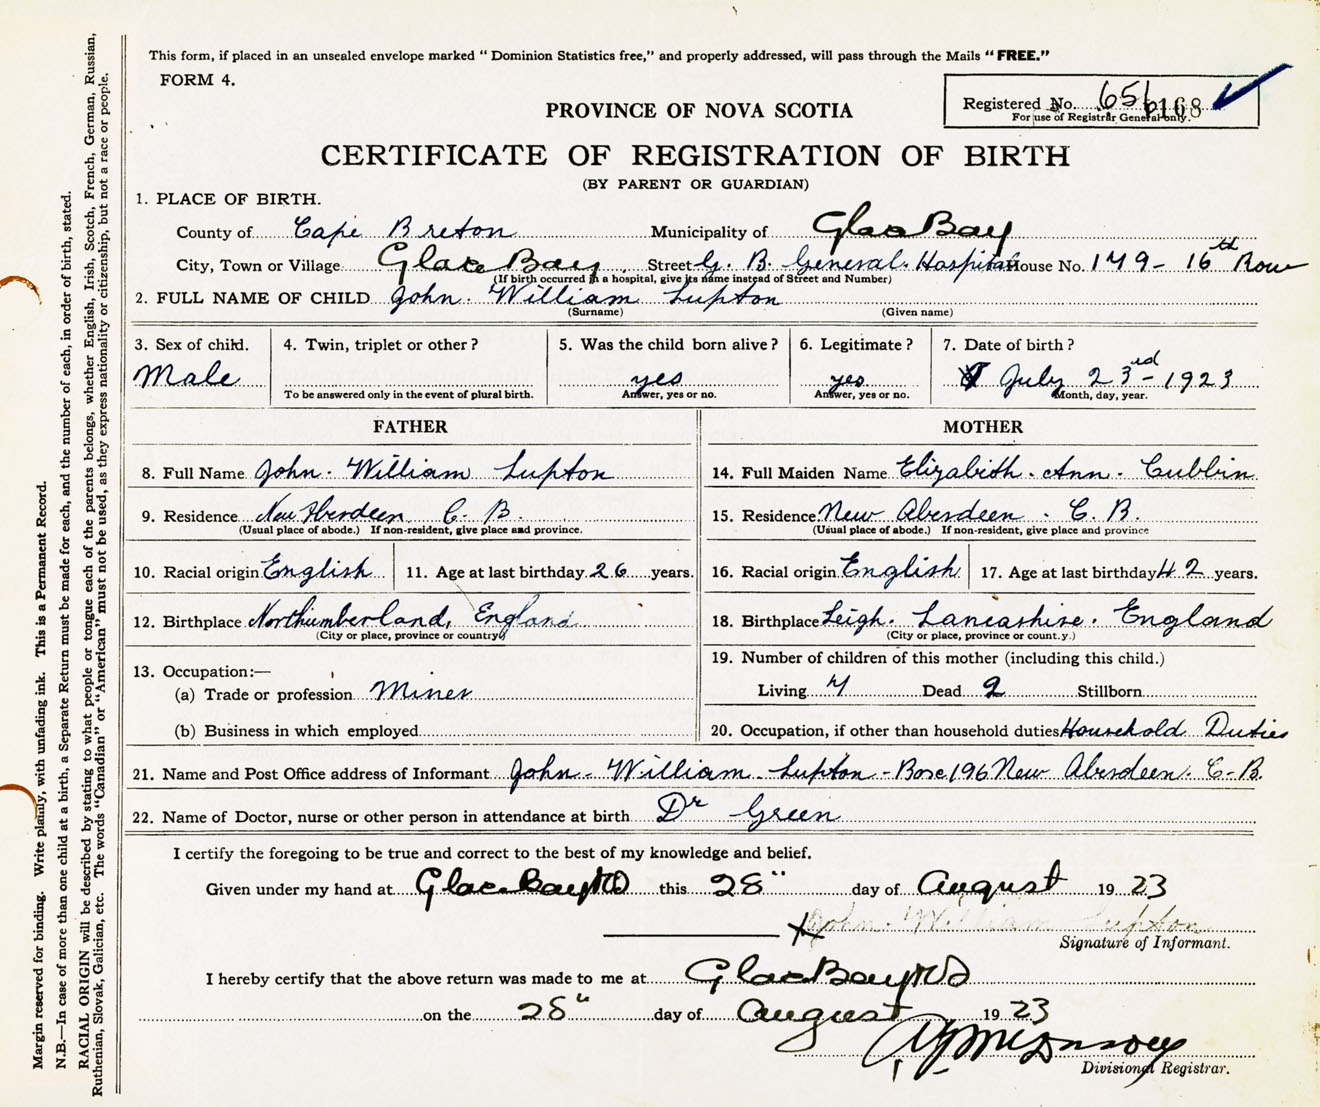 This form, if placed in an unsealed envelope marked "Dominion Statistics free," and properly addressed, will pass through the Mails "FREE."
FORM 4.
Registered No. 6168
For use of Registrar General only.
PROVINCE OF NOVA SCOTIA
CERTIFICATE OF REGISTRATION OF BIRTH
(BY PARENT OR GUARDIAN)
1. PLACE OF BIRTH.
County of Cape Breton Municipality of Glace Bay
City, Town or Village Glace Bay Street G. B. General Hospital House No. 179 - 16th Row
(If birth occurred in a hospital, give its name instead of Street and Number)
2. FULL NAME OF CHILD John. William Lupton
(Surname) (Given name)
3. Sex of child. 4. Twin, triplet or other? 5. Was the child born alive? 6. Legitimate? 7. Date of birth?
Male yes yes July 23rd - 1923
To be answered only in the event of plural birth. Answer, yes or no. Answer, yes or no. Month, day, year.
FATHER
8. Full Name John. William Lupton
9. Residence New Aberdeen C. B.
(Usual place of abode.) If non-resident, give place and province.
10. Racial origin English 11. Age at last birthday 26 years.
12. Birthplace Northumberland, England
(City or place, province or country)
13. Occupation:—
(a) Trade or profession Miner
(b) Business in which employed
MOTHER
14. Full Maiden Name Elizabeth. Ann. Cubbin
15. Residence New Aberdeen. C. B.
(Usual place of abode.) If non-resident, give place and province
16. Racial origin English 17. Age at last birthday 42 years.
18. Birthplace Leigh. Lancashire. England
(City or place, province or count.y.)
19. Number of children of this mother (including this child.)
Living Dead 2 Stillborn
20. Occupation, if other than household duties Household Duties
21. Name and Post Office address of Informant John. William Lupton - Box 196 New Aberdeen. C-B.
22. Name of Doctor, nurse or other person in attendance at birth Dr Green
I certify the foregoing to be true and correct to the best of my knowledge and belief.
Given under my hand at Glace Bay NS this 28" day of August 1923
X John. William Lupton
Signature of Informant.
I hereby certify that the above return was made to me at Glace Bay NS
on the 28" day of August 1923
Divisional Registrar.
Margin reserved for binding. Write plainly, with unfading ink. This is a Permanent Record.
N.B.—In case of more than one child at a birth, a Separate Return must be made for each, and the number of each, in order of birth, stated.
RACIAL ORIGIN will be described by stating to what people or tongue each of the parents belongs, whether English, Irish, Scotch, French, German, Russian,
Ruthenian, Slovak, Galician, etc. The words "Canadian" or "American" must not be used, as they express nationality or citizenship, but not a race or people.